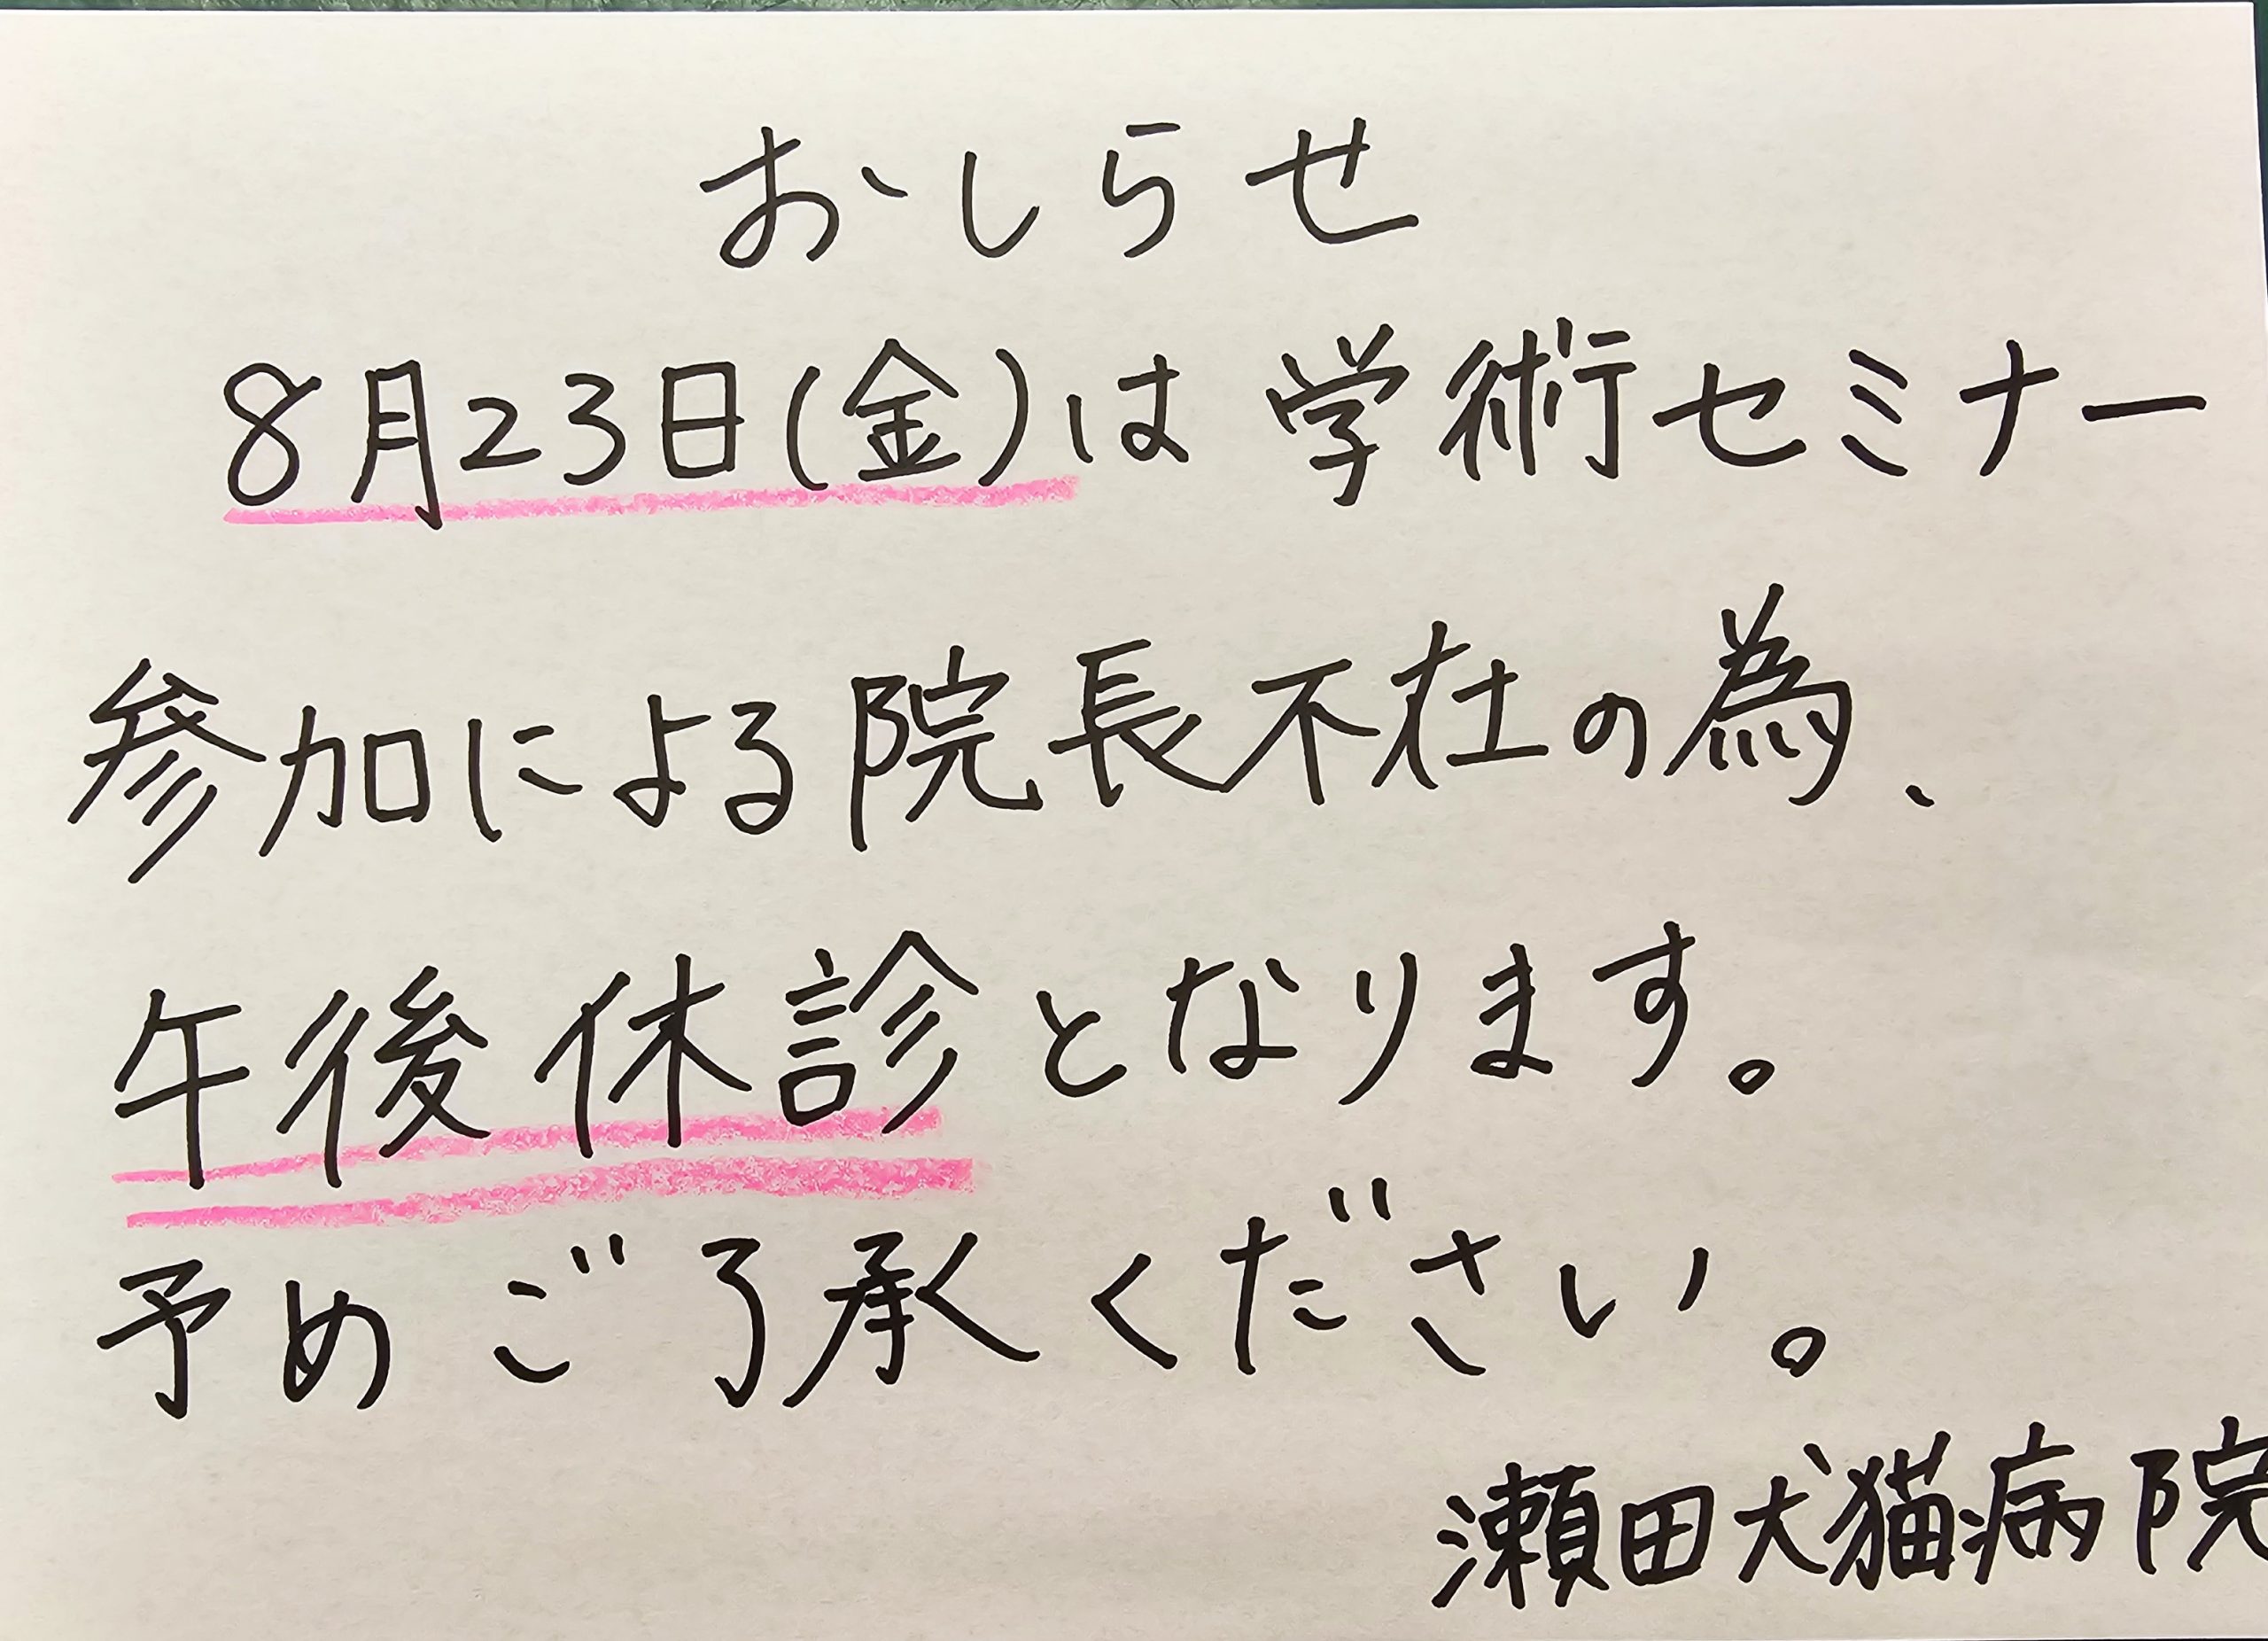 おしらせ
8月23日(金)は学術セミナー
参加による院長不在の為、
午後休診となります。
予めご了承ください。
瀬田犬猫病院